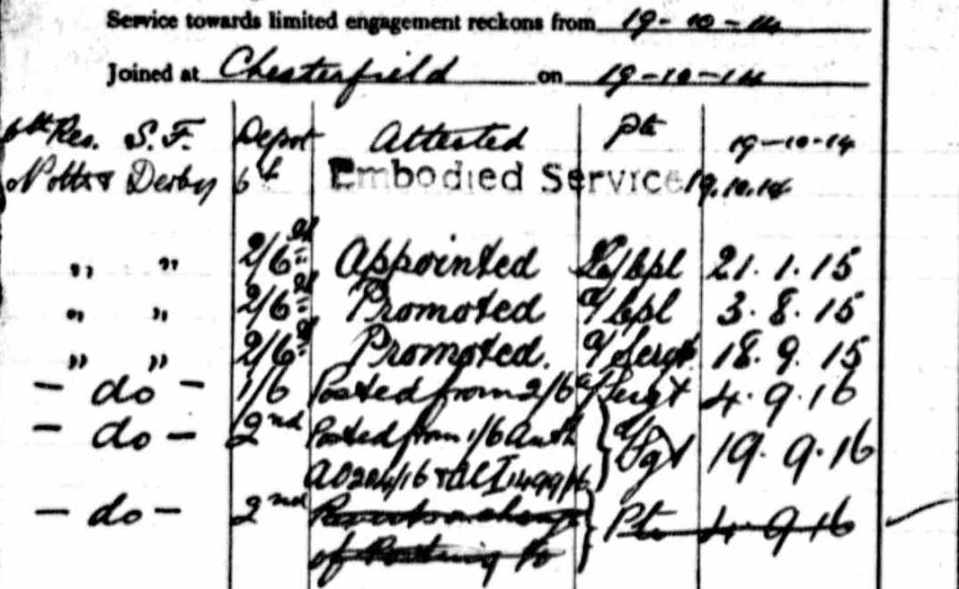 Service towards limited engagement reckons from 19-10-14
Joined at Chesterfield on 19-10-14
6th Res. S.F. Depot Attested Pte 19-10-14
Notts & Derby 6th Embodied Service 19.10.14
" " 2/6th Appointed L/Cpl 21.1.15
" " 2/6th Promoted a/Cpl 3.8.15
" " 2/6th Promoted. a/Sergt 18.9.15
- do - 1/6 Posted from 2/6 a/Sergt 4.9.16
- do - 2nd Posted from 1/6 Auth a/Sgt 19.9.16
AO204/16 & ACI 1499/16
- do - 2nd Reverts on change Pte 4.9.16
of Posting to